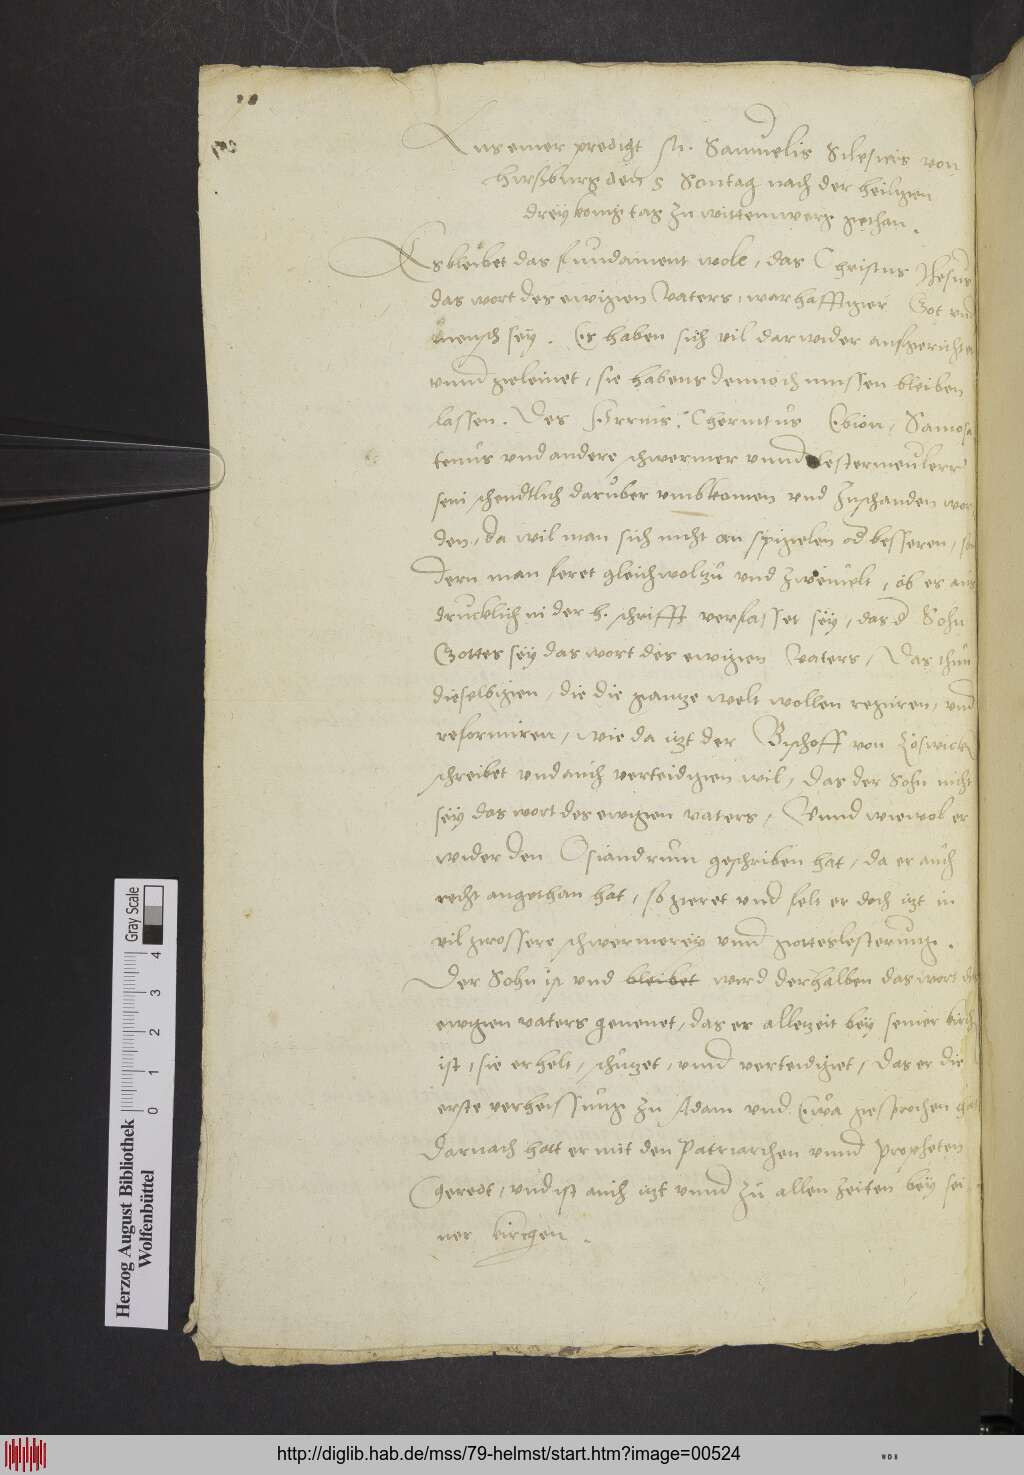 Aus einer predigt M. Samuelis Silesius von
hirsburg den 5 Sontag nach der heiligen
drey konig tag zu wittenwerg gethan.
Es bleibet das fundament wole, das Christus Jhesus
das wort des ewigen Vaters, warhafftiger Got und
mensch sey. Es haben sich vil darwider aufgerichtet
unnd geleinet, sie habens dennoch mussen bleiben
lassen. Des Cherintus Ebion, Samosa
tenus und andere schwermer unnd lestermeuler
sein schendtlich daruber umbkomen und zuschanden wor
den, da wil man sich nicht an spigelen od besseren, son
dern man feret gleichwol zu und zweiuelt, ob es aus
drucklich in der h. schrifft verfasset sey, das d Sohn
Gottes sey das wort des ewigen Vaters, Das thun
dieselbigen, die die gantze welt wollen regiren, und
reformiren, wie da itzt der Bischoff von
schreibet und auch verteidigen wil, das der Sohn nicht
sey das wort des ewigen vaters, Unnd wiewol er
wider den Osiandrum geschriben hat, da er auch
recht angethan hat, so geret und felt er doch itzt in
vil grossere schwermerey unnd gotteslesterung.
Der Sohn ist und bleibet wird derhalben das wort des
ewigen vaters genenet, das er allezeit bey seiner kirch
ist, sie erhelt, schutzet, unnd verteidiget, Das er die
erste verheissung zu Adam und Eva gesprochen hat
Darnach hatt er mit den Patriarchen unnd Propheten
geredt, und ist auch itzt unnd zu allen zeiten bey sei
ner kirchen.
Herzog August Bibliothek
Wolfenbüttel
Gray Scale
0 1 2 3 4
http://diglib.hab.de/mss/79-helmst/start.htm?image=00524